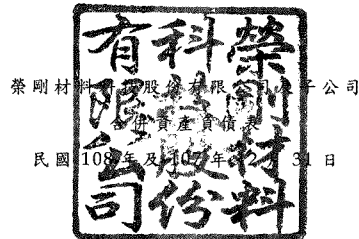 榮剛材料科技股份有限公司及子公司
合併資產負債表
民國 108 年及 107 年 12 月 31 日
榮剛材料
科技股份
有限公司